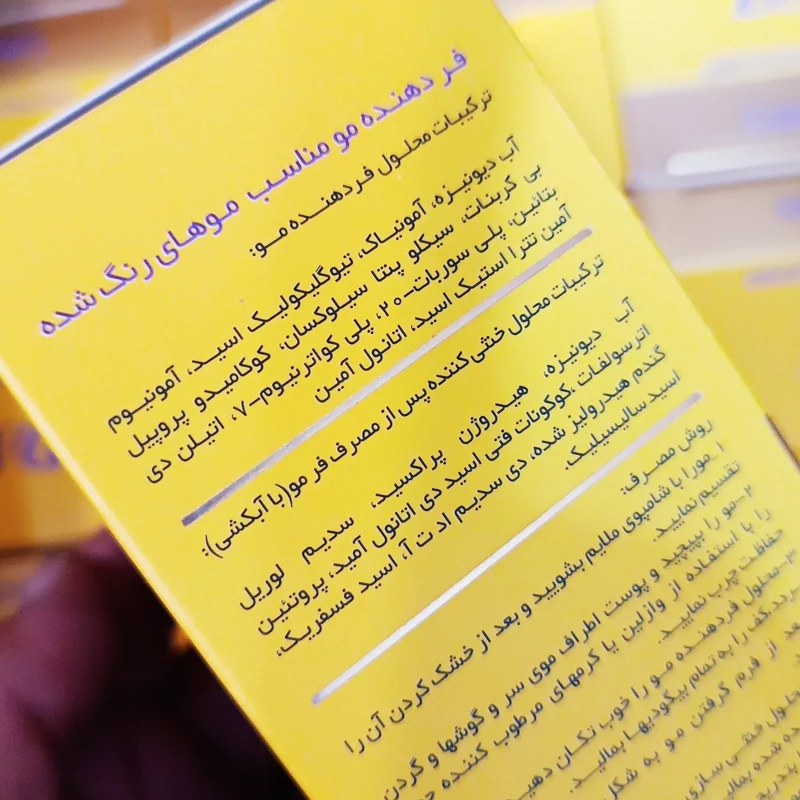 فر دهنده مو مناسب موهای رنگ شده
ترکیبات محلول فردهنده مو:
آب دیونیزه، آمونیاک، تیوگلیکولیک اسید، آمونیوم
بی کربنات، سیکلو پنتا سیلوکسان، کوکامیدو پروپیل
بتائین، پلی سوربات-۲۰، پلی کواترنیوم-۷، اتیلن دی
آمین تترا استیک اسید، اتانول آمین
ترکیبات محلول خنثی کننده پس از مصرف فر مو(با آبکشی):
آب دیونیزه، هیدروژن پراکسید، سدیم لوریل
اترسولفات، کوکونات فتی اسید دی اتانول آمید، پروتئین
گندم هیدرولیز شده، دی سدیم اد ت آ، اسید فسفریک،
اسید سالیسیلیک.
روش مصرف:
۱- مو را با شامپوی ملایم بشویید و بعد از خشک کردن آن را
تقسیم نمایید.
۲-مو را بپیچید و پوست اطراف موی سر و گوشها و گردن
را با استفاده از وازلین یا کرمهای مرطوب کننده
حفاظت چرب نمایید.
۳-محلول فردهنده مو را خوب تکان دهید
کف را به تمام بیگودیها بمالید.
بعد از فرم گرفتن مو به شکل
محلول خنثی سازی
شده بمالید